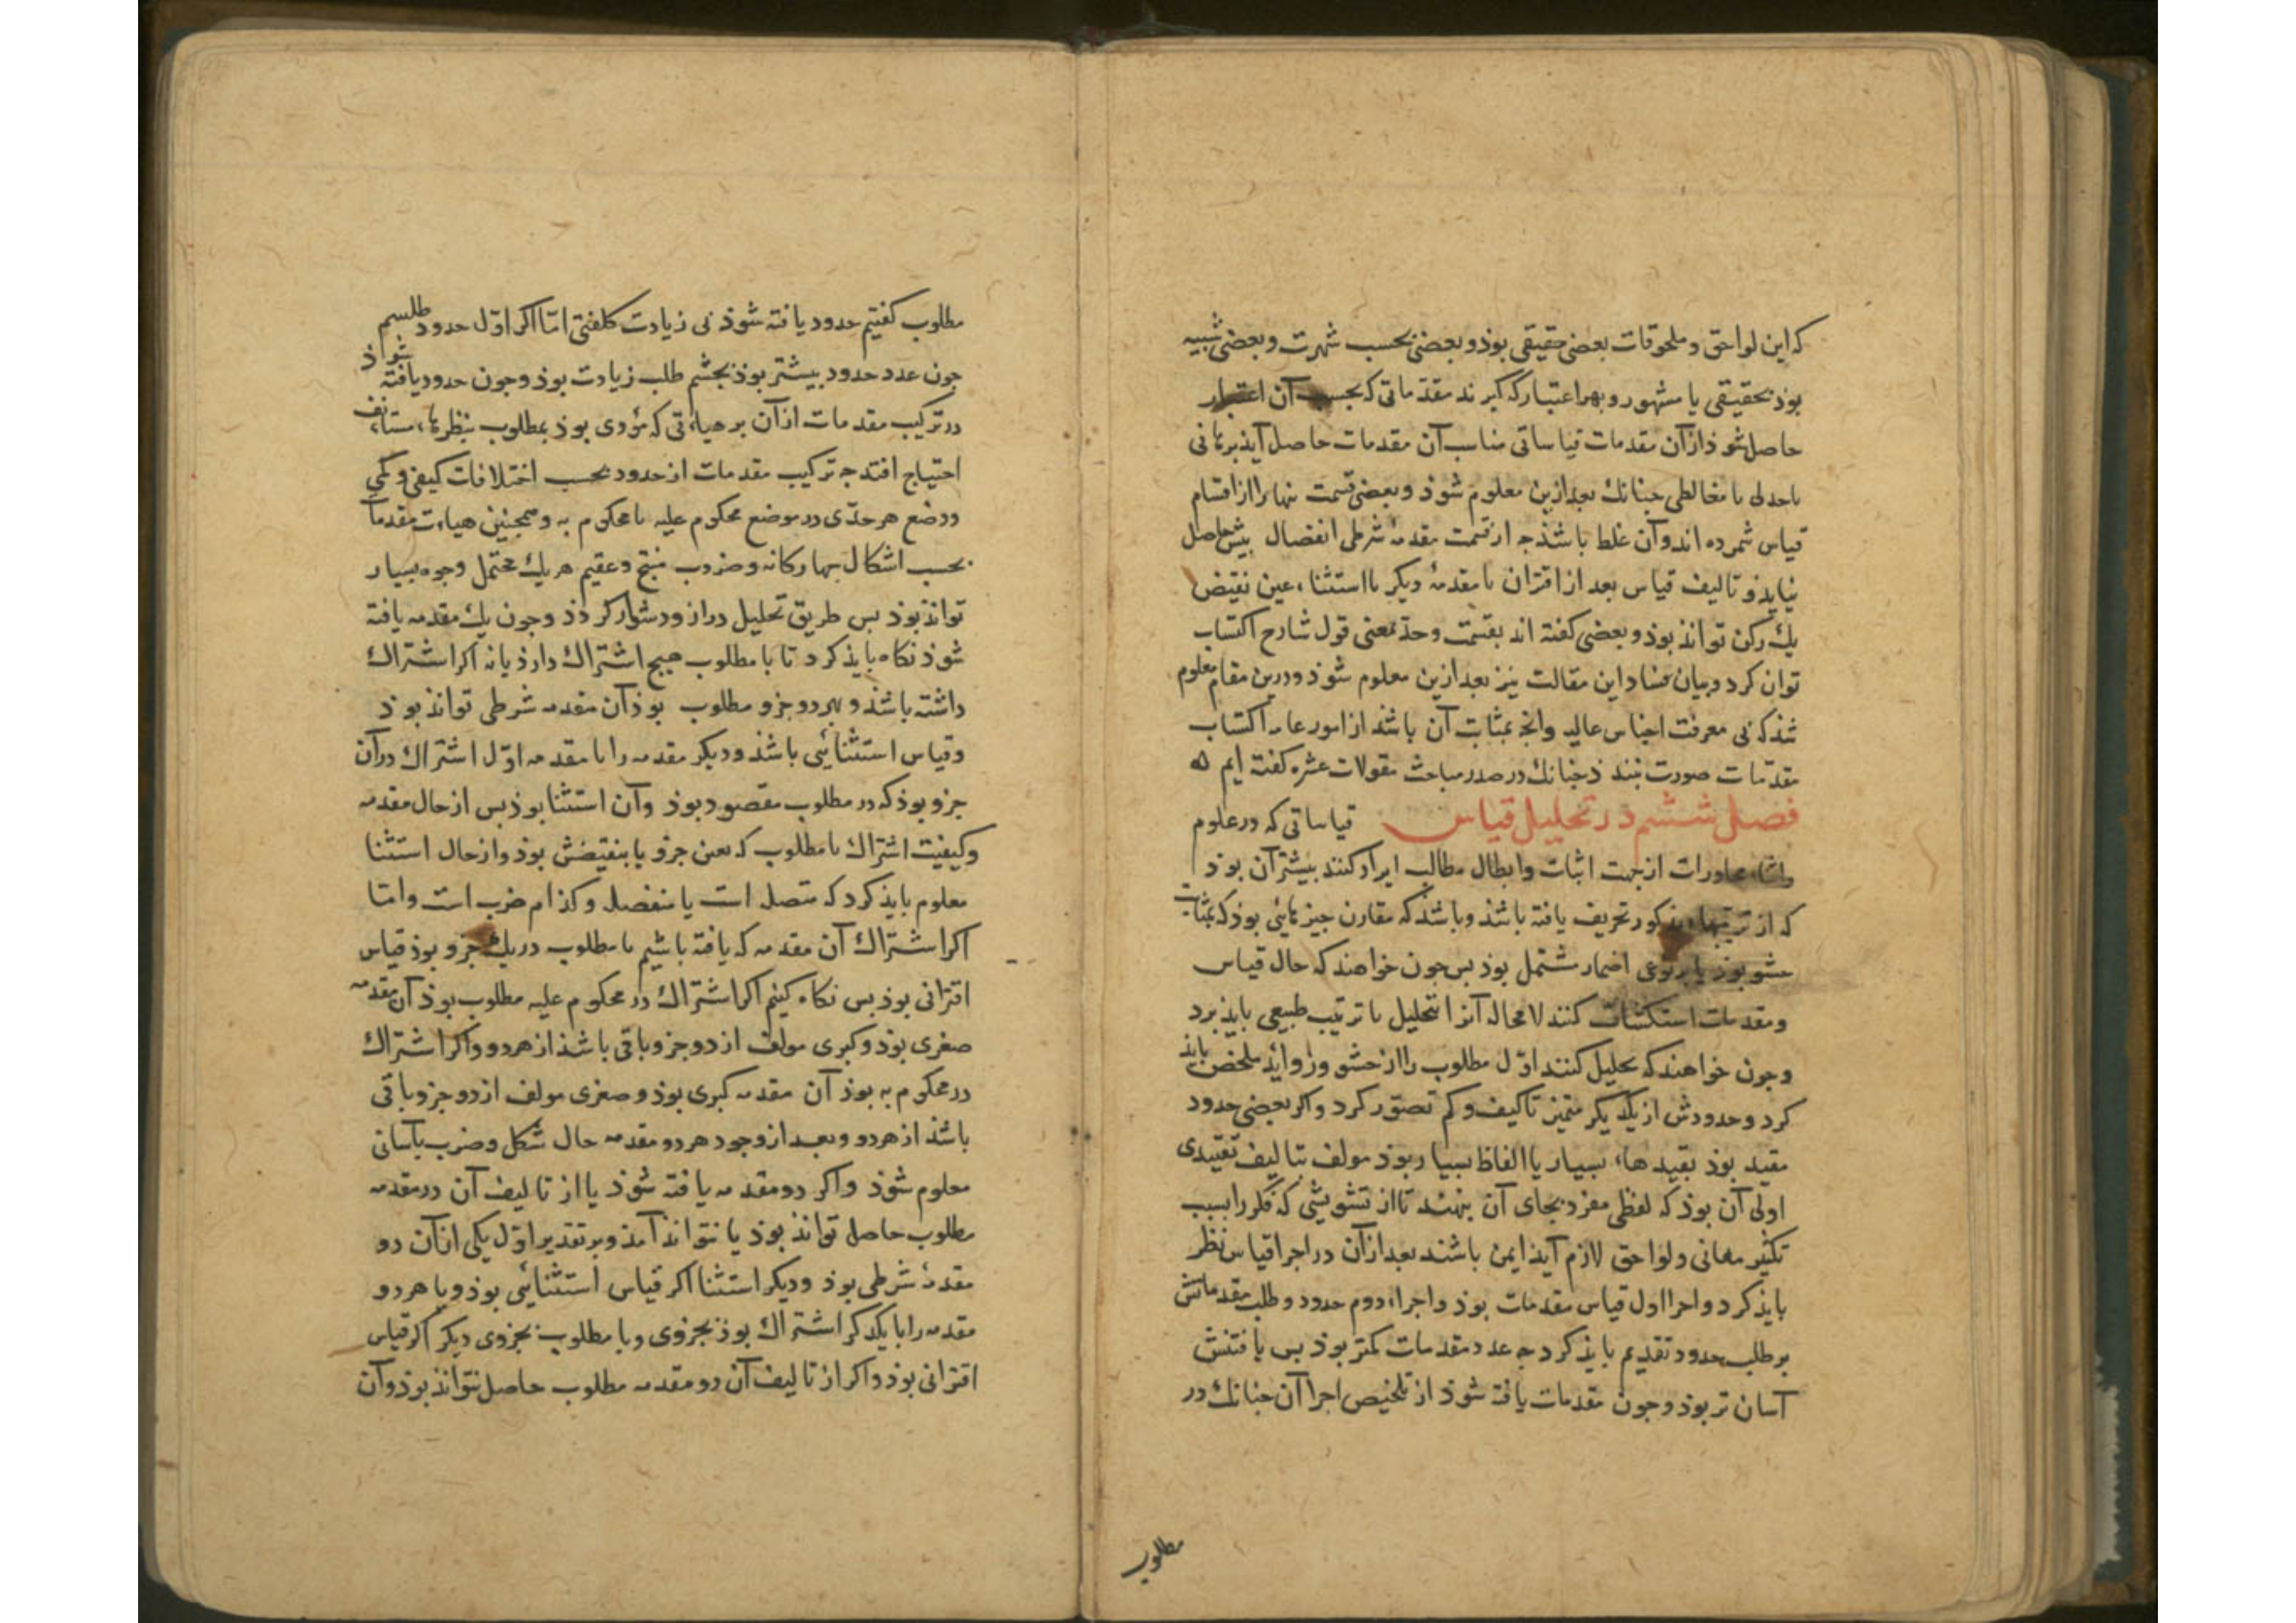 که این لواحق و ملحوقات بعضی حقیقی بوذ و بعضی بحسب شهرت و بعضی شبیه
بوذ بحقیقی یا مشهور و بهر اعتبار که کیرند مقدماتی که بحسب آن اعتبار
حاصل شوذ از آن مقدمات قیاساتی مناسب آن مقدمات حاصل آیذ برهانی
یا جدلی یا مغالطی جنانك بعد ازین معلوم شوذ و بعضی قسمت تنها را از اقسام
قیاس شمرده اند و آن غلط باشذ جه از قسمت مقدمهٔ شرطی انفصال بیش حاصل
نیایذ و تالیف قیاس بعد از اقتران با مقدمهٔ دیکر یا استثناء عین نقیض
یك رکن تواند بوذ و بعضی کفته اند بقسمت وحد بمعنی قول شارح اکتساب
توان کرد و بیان فساد این مقالت نیز بعد ازین معلوم شوذ و درین مقام معلوم
شذ که بی معرفت اجناس عالیه وانج بمثابت آن باشذ از امور عامه اکتساب
مقدمات صورت نبندذ جنانك در صدر مباحث مقولات عشره کفته ایم ه
فصل ششم در تحلیل قیاس قیاساتی که در علوم
واثناء محاورات از جهت اثبات وابطال مطالب ایراد کنند بیشتر آن بوذ
که از ترتیبهاء مذکور تحریف یافته باشذ وباشذ که مقارن جیزهائی بوذ که بمثابت
حشو بوذ یا بر نوعی اضمار مشتمل بوذ بس جون خواهند که حال قیاس
ومقدمات استکشاف کنند لا محاله آنرا بتحلیل با ترتیب طبیعی بایذ برد
وجون خواهند که تحلیل کنند اول مطلوب را از حشو وزوائد ملخص بایذ
کرد وحدودش از یکدیکر متمیز تا کیف و کم تصور کرد واکر بعضی حدود
مقید بوذ بقیدهاء بسیار یا الفاظ بسیار بوذ مولف بتالیف تقییدی
اولی آن بوذ که لفظی مفرد بجای آن بنهند تا از تشویشی که فکر را بسبب
تکثیر معانی ولواحق لازم آیذ ایمن باشند بعد از آن در اجزا قیاس نظر
بایذ کرد واجزا اول قیاس مقدمات بوذ واجزاء دوم حدود وطلب مقدماتش
بر طلب حدود تقدیم بایذ کرد جه عدد مقدمات کمتر بوذ بس یافتنش
آسان تر بوذ وجون مقدمات یافته شوذ از تلخیص اجزا آن جنانك در
مطلوب
مطلوب کفتیم حدود یافته شوذ بی زیادت کلفتی اما اکر اول حدود طلبیم
جون عدد حدود بیشتر بوذ بجشم طلب زیادت بوذ وجون حدود یافته شوذ
در ترکیب مقدمات از آن بر هیاءتی که مؤدی بوذ بمطلوب بنظرهاء مستانف
احتیاج افتد جه ترکیب مقدمات از حدود بحسب اختلافات کیفی و کمی
ووضع هر حدی در موضع محکوم علیه یا محکوم به وهمجنین هیاءت مقدمات
بحسب اشکال جهارکانه وضروب منتج وعقیم هر یك محتمل وجوه بسیار
تواند بوذ بس طریق تحلیل دراز ودشوار کرذذ وجون یك مقدمه یافته
شوذ نکاه بایذ کرد تا با مطلوب هیج اشتراك دارذ یا نه اکر اشتراك
داشته باشذ و بهر دو جزو مطلوب بوذ آن مقدمه شرطی تواند بوذ
وقیاس استثنائی باشذ ودیکر مقدمه را با مقدمه اول اشتراك در آن
جزو بوذ که در مطلوب مقصود بوذ وآن استثنا بوذ بس از حال مقدمه
وکیفیت اشتراك با مطلوب که بعین جزو یا بنقیضش بوذ واز حال استثنا
معلوم بایذ کرد که متصل است یا منفصل وکذام ضرب است واما
اکر اشتراك آن مقدمه که یافته باشیم با مطلوب در یك جزو بوذ قیاس
اقترانی بوذ بس نکاه کنیم اکر اشتراك در محکوم علیه مطلوب بوذ آن مقدمه
صغری بوذ وکبری مولف از دو جزو باقی باشذ از هر دو واکر اشتراك
در محکوم به بوذ آن مقدمه کبری بوذ وصغری مولف از دو جزو باقی
باشذ از هر دو وبعد از وجود هر دو مقدمه حال شکل وضرب بآسانی
معلوم شوذ واکر دو مقدمه یافته شوذ یا از تالیف آن دو مقدمه
مطلوب حاصل تواند بوذ یا نتواند آمذ وبر تقدیر اول یکی از آن دو
مقدمهٔ شرطی بوذ ودیکر استثنا اکر قیاس استثنائی بوذ ویا هر دو
مقدمه را با یکدکر اشتراك بوذ بجزوی وبا مطلوب بجزوی دیکر اکر قیاس
اقترانی بوذ واکر از تالیف آن دو مقدمه مطلوب حاصل نتواند بوذ وآن